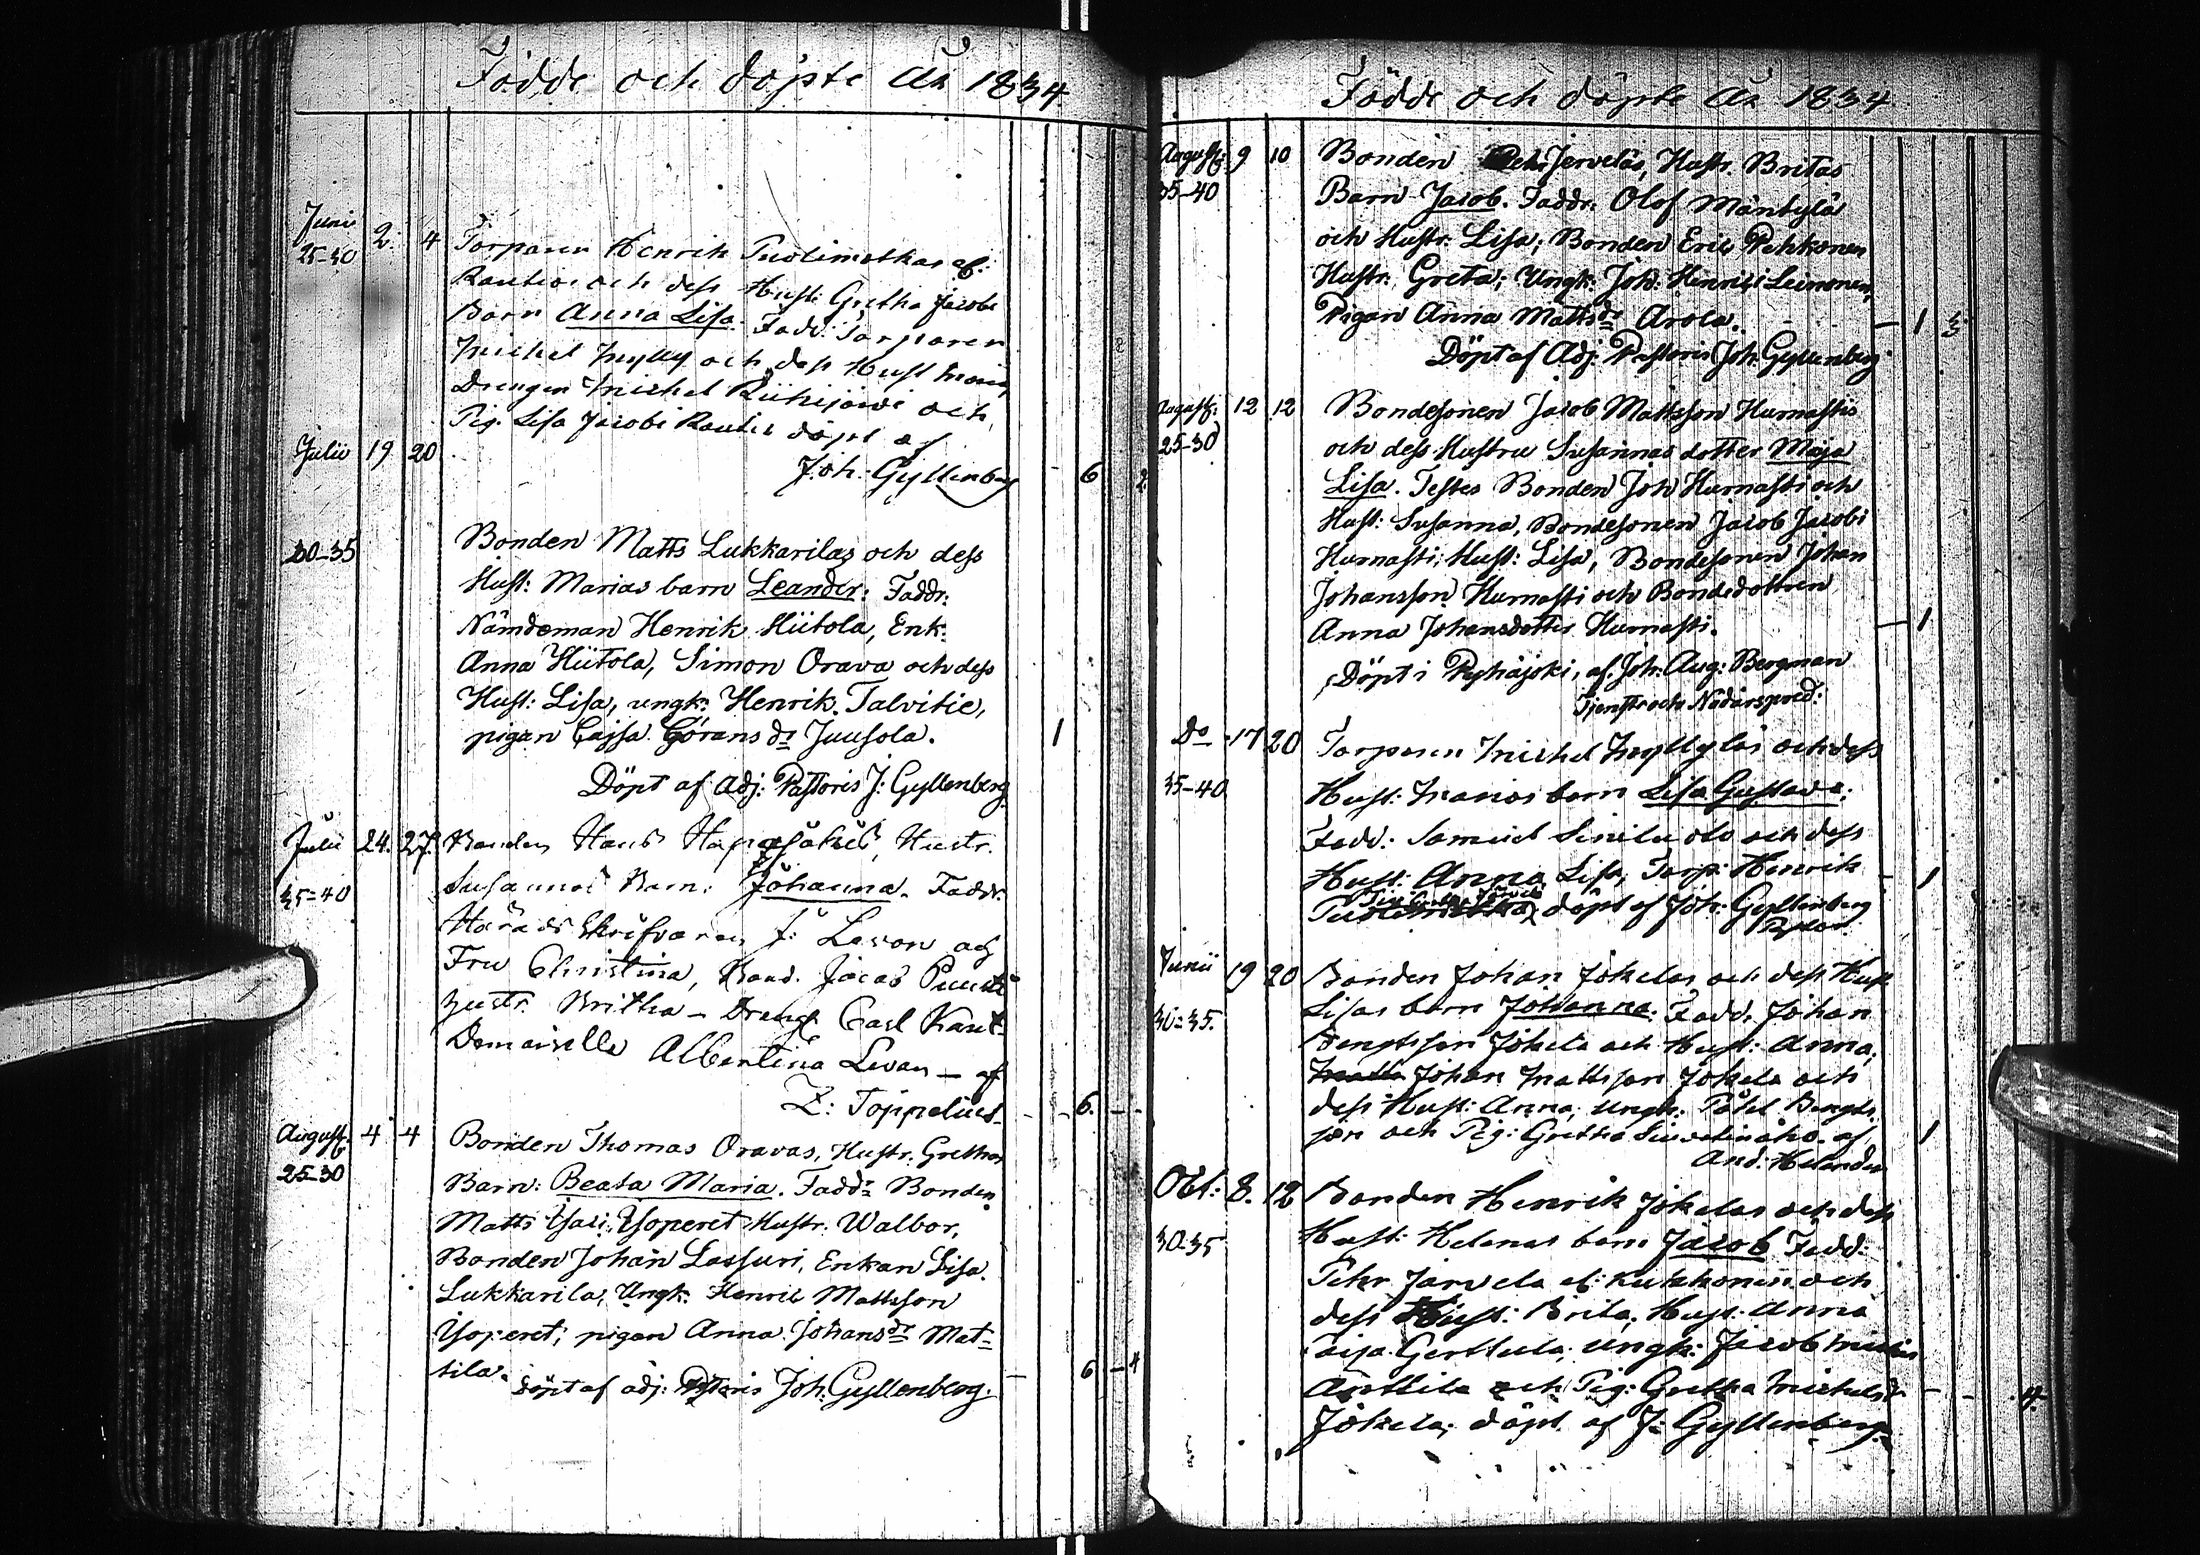 Födde och döpte År 1834
Junii 2. 4 Torparen Henrik Puolimatkas af:
25-30 Rautio och dess Hust: Gretha Jacobs
Barn Anna Lisa. Fadd: Torparen
Michel Mylly och dess Hust Maria,
Drengen Michel Riihijärvi och
Pig. Lisa Jacobi Rautio döpt af
Julii 19 20
Joh: Gyllenberg 6 2
30-35 Bonden Matts Lukkarilas och dess
Hust: Marias barn Leander: Faddr:
Nämdeman Henrik Hiitola, Enk:
Anna Hiitola, Simon Orava och dess
Hust: Lisa, ungk: Henrik Talvitie,
pigan Cajsa Görans dr Juusola. 1
Döpt af Adj: Pastoris J: Gyllenberg
Julii 24. 27. Bonden Hans Haapajäkis, Hustr.
35-40 Susannas Barn: Johanna. Faddr.
Härads Skrifvaren J: Levon och
Fru Christina, Bond. Jacob
hustr. Britha – Dreng Carl
Demoiselle Albertina Levon – af
Z: Toppelius 6.
August: 4 4 Bonden Thomas Oravas, Hustr. Grethas
25-30 Barn: Beata Maria. Faddr Bonden
Matts Ysoperet Hustr. Walbor,
Bonden Johan Lassuri, Enkan Lisa
Lukkarila, Ungk. Henric Mattsson
Ysoperet; pigan Anna Johansdr Mat-
tila. döpt af adj: Pastoris Joh: Gyllenberg. 6 4
Födde och döpte År 1834
August: 9 10 Bonden Jervelas, Hustr. Britas
35-40 Barn Jacob. Faddr. Olof Mäntylä
och Hustr: Lisa; Bonden Eric Pehkonen
Hustr. Greta; Ungk: Joh: Henric Leinonen,
Pigan Anna Mattsdr Arola. 1
Döpt af Adj: Pastoris Joh: Gyllenberg
August: 12 12 Bondesonen Jacob Mattsson Hurnastis
25-30 och dess Hustru Susannas dotter Maja
Lisa. Testes Bonden Joh Hurnasti och
Hust: Susanna, Bondesonen Jacob Jacobi
Hurnasti; Hust: Lisa, Bondesonen Johan
Johansson Hurnasti och Bondedottren
Anna Johansdotter Hurnasti. 1
Döpt i Pyhäjoki, af Joh: Aug: Bergman
Tjenstr och Nådårspred:
Do 17 20 Torparen Michel Myllyläs och dess
35-40 Hust: Marias barn Lisa Gustava;
Fadd: Samuel och dess
Hust: Anna Lisa, Torp: Henrik 1
Puolimatka, döpt af Joh: Gyllenberg
Junii 19 20 Bonden Johan Jokelas och dess Hust
30-35. Lisas barn Johanna. Fadd: Johan
Bengtsson Jokela och Hust: Anna;
Matts Johan Mattsson Jokela och
dess Hust: Anna; Ungk: Bengts
son och Pig: Gretha af 1
And: Helander
Obt: 8. 12 Bonden Henrik Jokelas och dess
30-35 Hust: Helenas barn Jacob Fadd:
Pehr Jarvela och
dess Hust: Brita; Hust: Anna
Caisa Gerttula; Ungk: Jacob
Anttila och Pig: Gretha Michelsdr 4
Jokela; döpt af J: Gyllenberg.